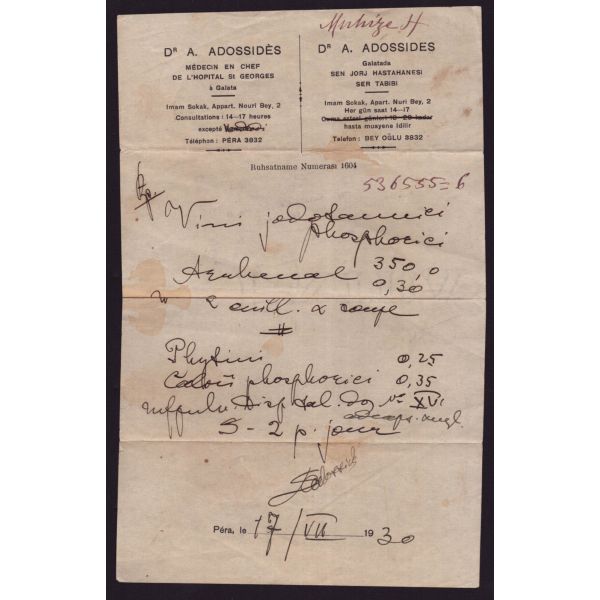 Muhize H
Dr A. ADOSSIDÈS
MÉDECIN EN CHEF
DE L'HOPITAL St GEORGES
à Galata
Imam Sokak, Appart. Nouri Bey, 2
Consultations : 14—17 heures
excepté
Téléphon : PÉRA 3832
Dr A. ADOSSIDES
Galatada
SEN JORJ HASTAHANESI
SER TABIBI
Imam Sokak, Apart. Nuri Bey, 2
Her gün saat 14-17
hasta muayene idilir
Telefon : BEY OĞLU 3832
Ruhsatname Numerası 1604
536555=6
Rp.
Vini jodotannici
phosphorici
350,0
Arrhenal 0,30
2 cuill. à soupe
#
Phytini 0,25
Calcii phosphorici 0,35
Disp. tal. dos No XV
ad caps. amyl.
S - 2 p. jour
Péra, le 17/VII 1930